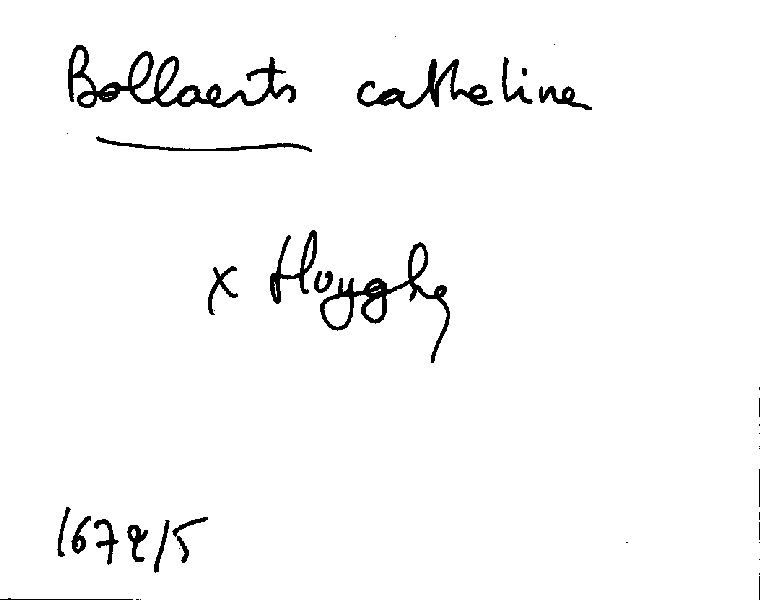 Bollaerts catheline
x Huyghe
1672/5